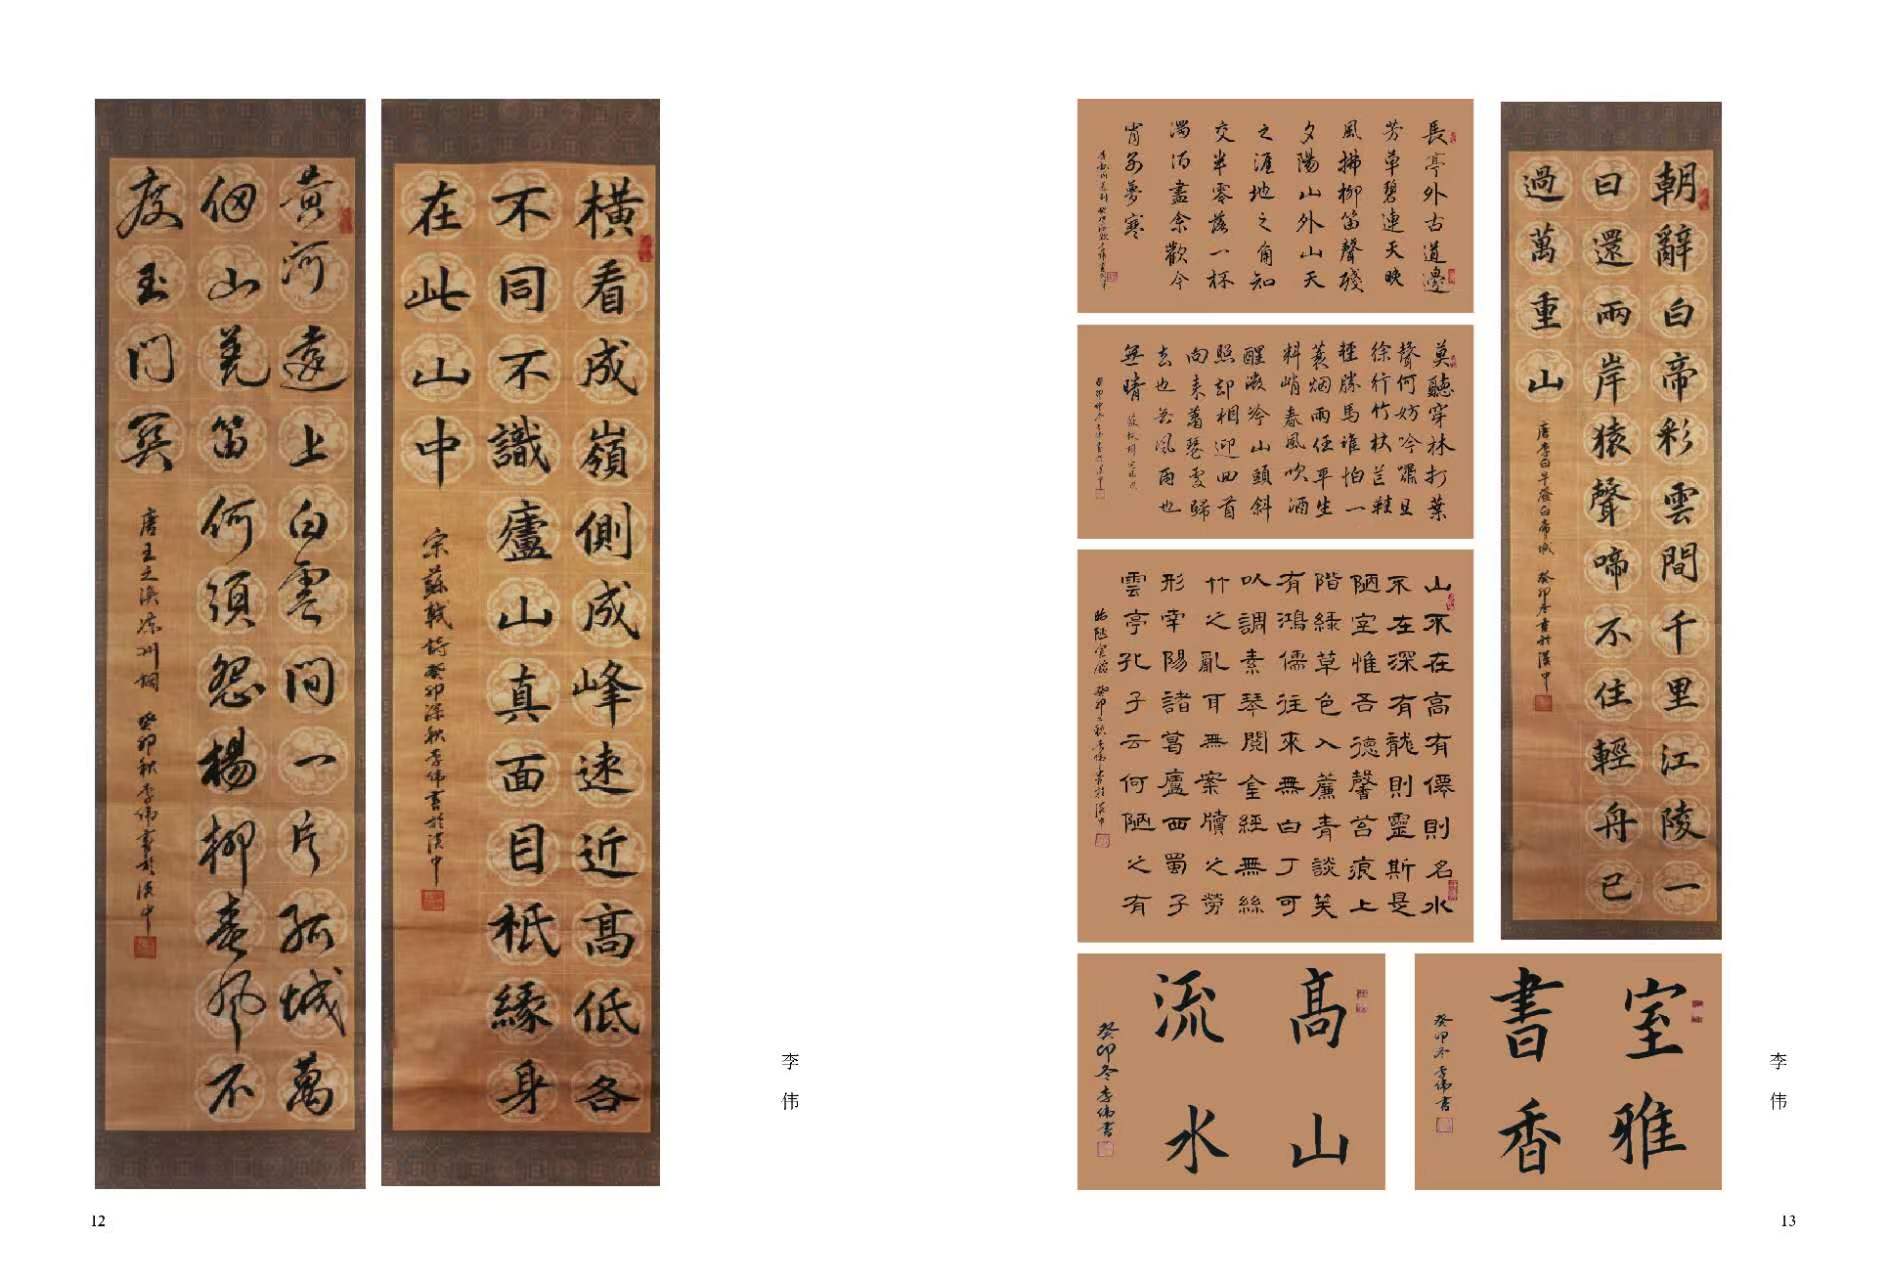 黄河遠上白雲间一片孤城萬
仞山羌笛何須怨楊柳春風不
度玉门關
唐王之渙凉州詞 癸卯秋李伟書於漢中
横看成嶺側成峰遠近高低各
不同不識廬山真面目秖緣身
在此山中
宋蘇軾詩癸卯深秋李伟書於漢中
李伟
12
長亭外古道邊
芳草碧連天晚
風拂柳笛聲殘
夕陽山外山天
之涯地之角知
交半零落一杯
濁酒盡余歡今
宵别夢寒
莫聽穿林打葉
聲何妨吟嘯且
徐行竹杖芒鞋
輕勝馬谁怕一
蓑烟雨任平生
料峭春風吹酒
醒微冷山頭斜
照却相迎回首
向来蕭瑟處歸
去也無風雨也
無晴
癸卯仲冬李伟書於漢中
山不在高有僊則名水
不在深有龍則靈斯是
陋室惟吾德馨苔痕上
階緑草色入簾青談笑
有鴻儒往來無白丁可
以調素琴閲金經無絲
竹之亂耳無案牘之勞
形南陽諸葛廬西蜀子
雲亭孔子云何陋之有
陋室銘 癸卯秋李伟書於漢中
朝辭白帝彩雲間千里江陵一
日還兩岸猿聲啼不住輕舟已
過萬重山
唐李白早發白帝城 癸卯冬書於漢中
高山
流水
癸卯冬李伟書
室雅
書香
癸卯冬李伟書
李伟
13